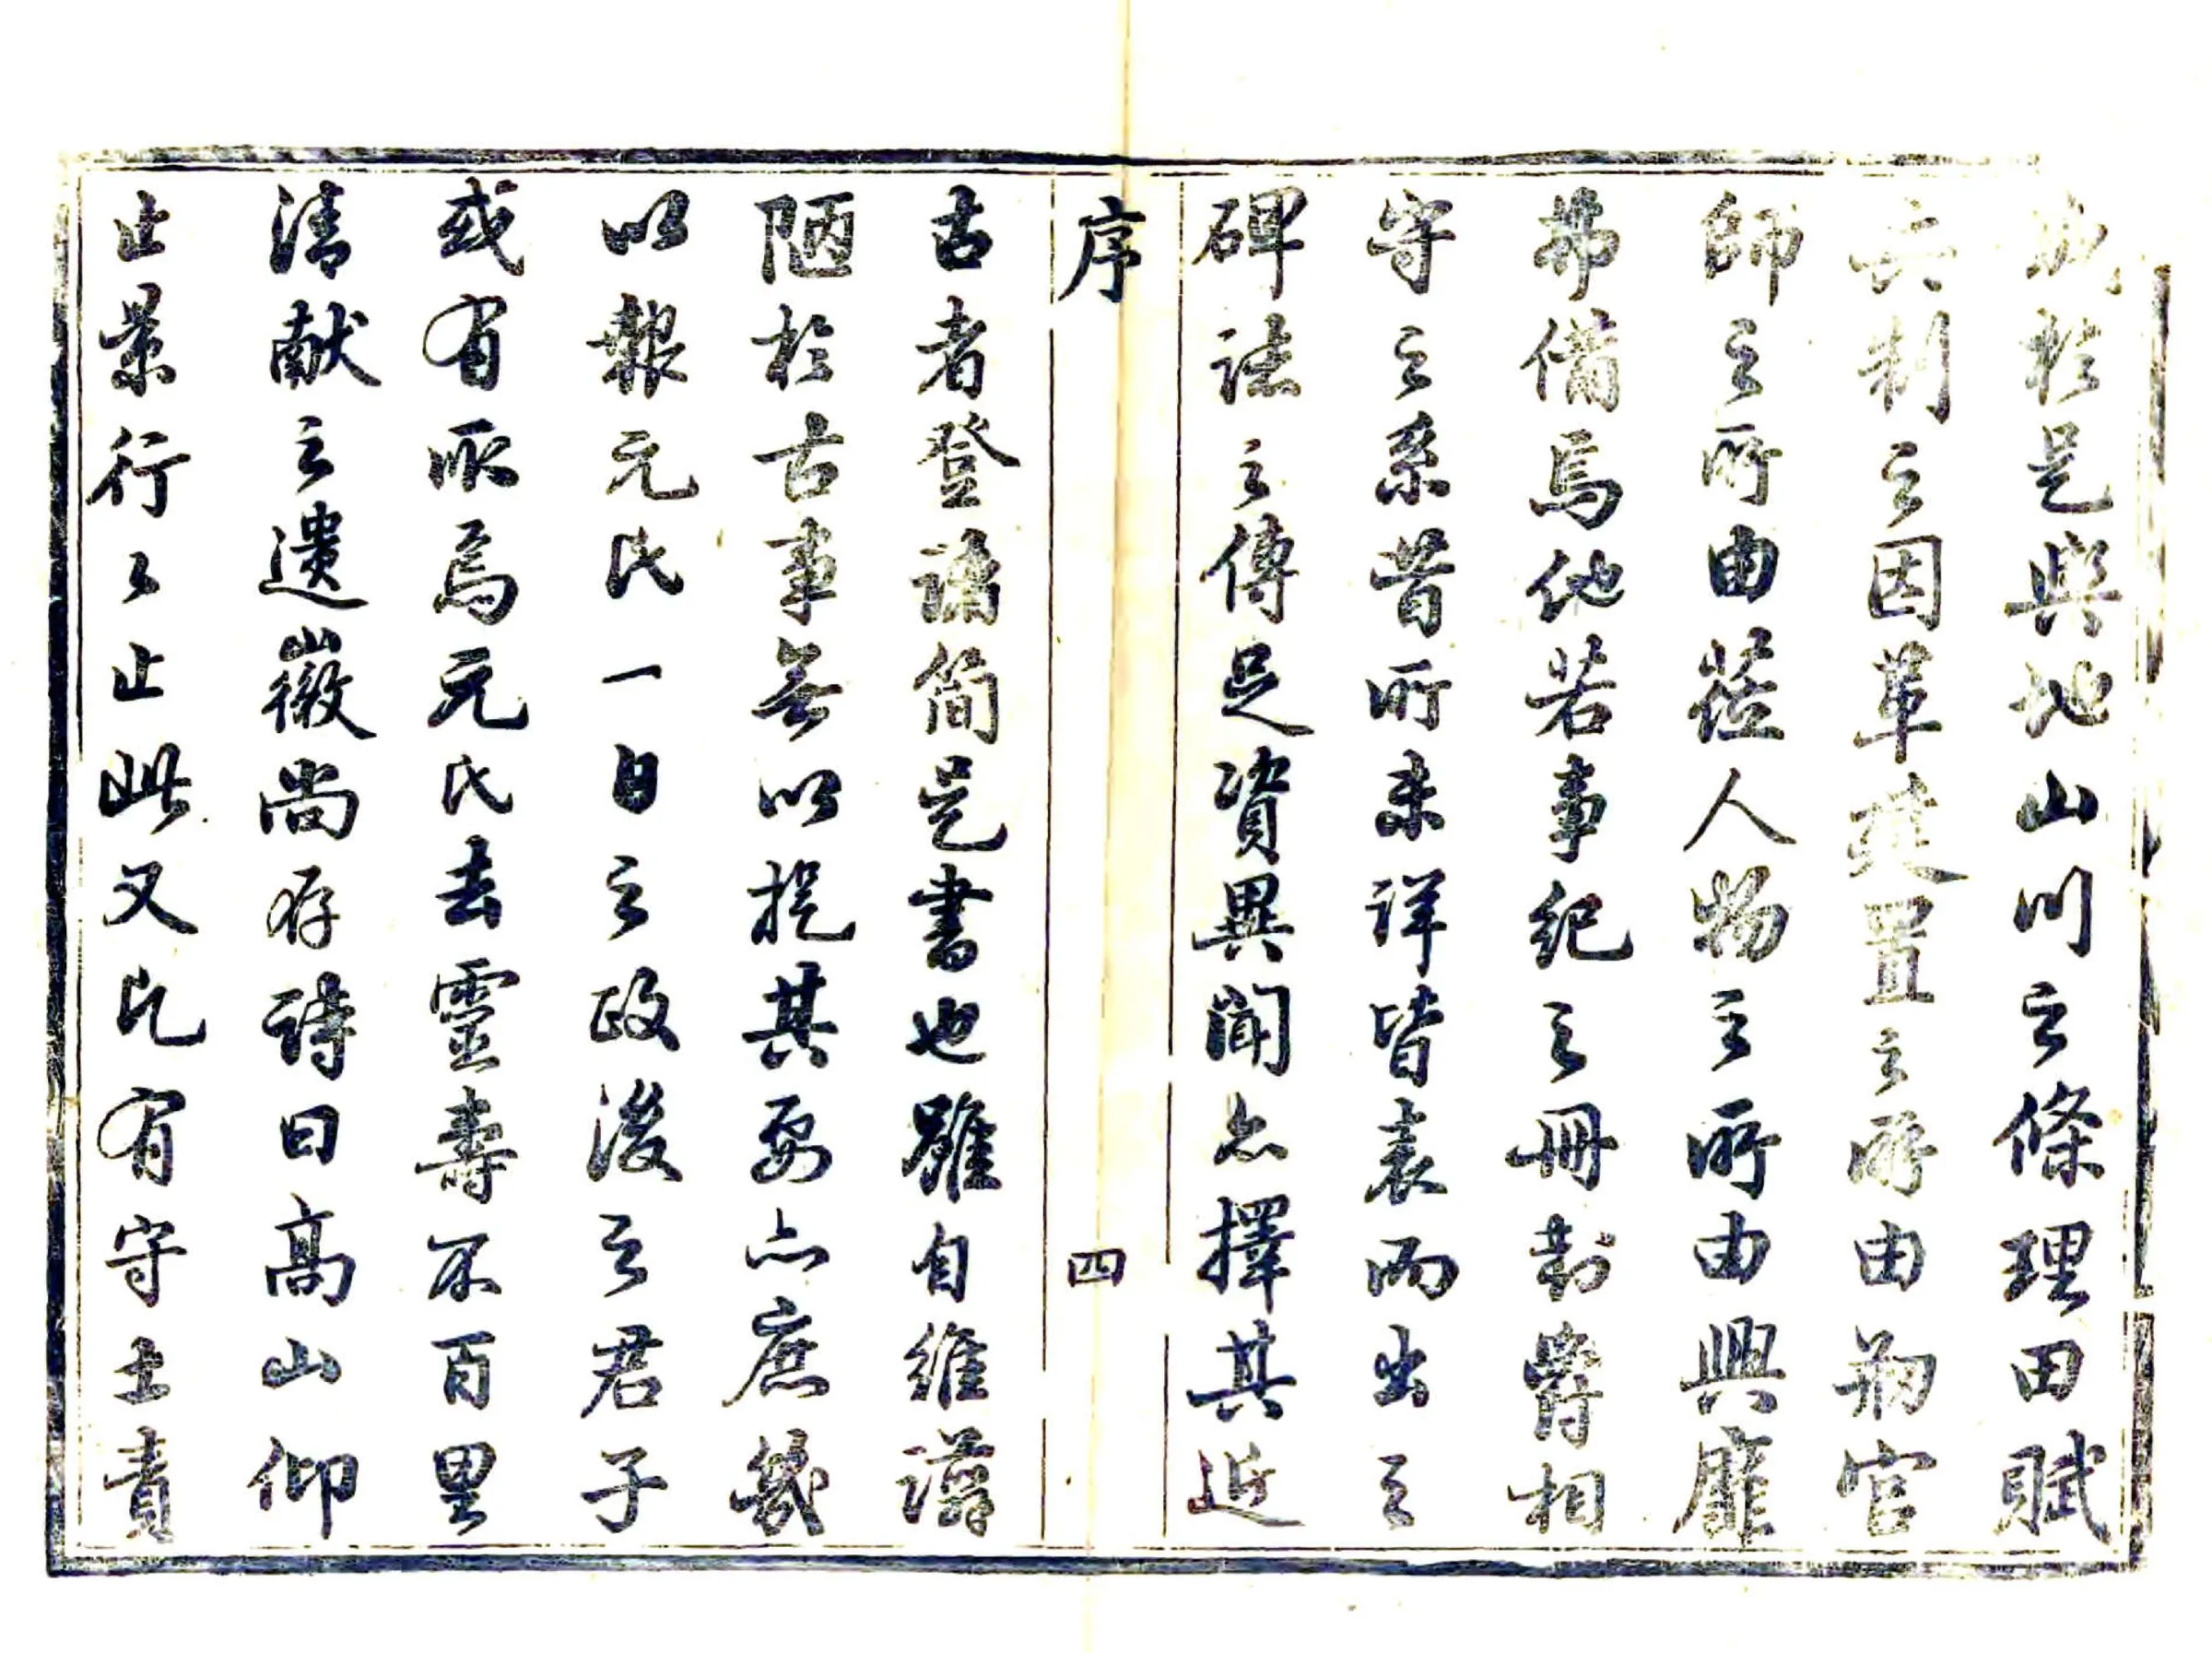 於是與地山川之條理田賦
六制之因革建置之所由初官
師之所由蒞人物之所由興靡
弗備焉他若事紀之冊封爵相
守之系昔所未詳皆表而出之
碑誌之傳足資異聞亦擇其近
序
四
古者登諸簡是書也雖自維譾
陋於古事無以挈其要亦庶幾
以報元氏一日之政後之君子
或有取焉元氏去靈壽不百里
清獻之遺徽尚存詩曰高山仰
止景行〻止此又凡有守土責